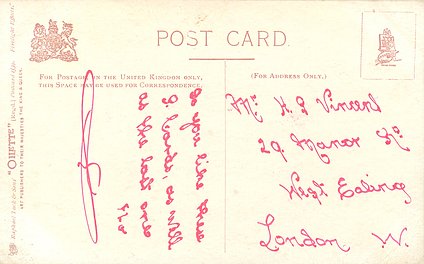 POST CARD.
FOR POSTAGE IN THE UNITED KINGDOM ONLY,
THIS SPACE MAY BE USED FOR CORRESPONDENCE.
(FOR ADDRESS ONLY.)
Do you like these
P. Cards, as well
as the last ones
Mr H. G. Vincent
29. Manor Rd
West Ealing
London W.
Raphael Tuck & Sons' "OILETTE"
ART PUBLISHERS TO THEIR MAJESTIES THE KING & QUEEN.